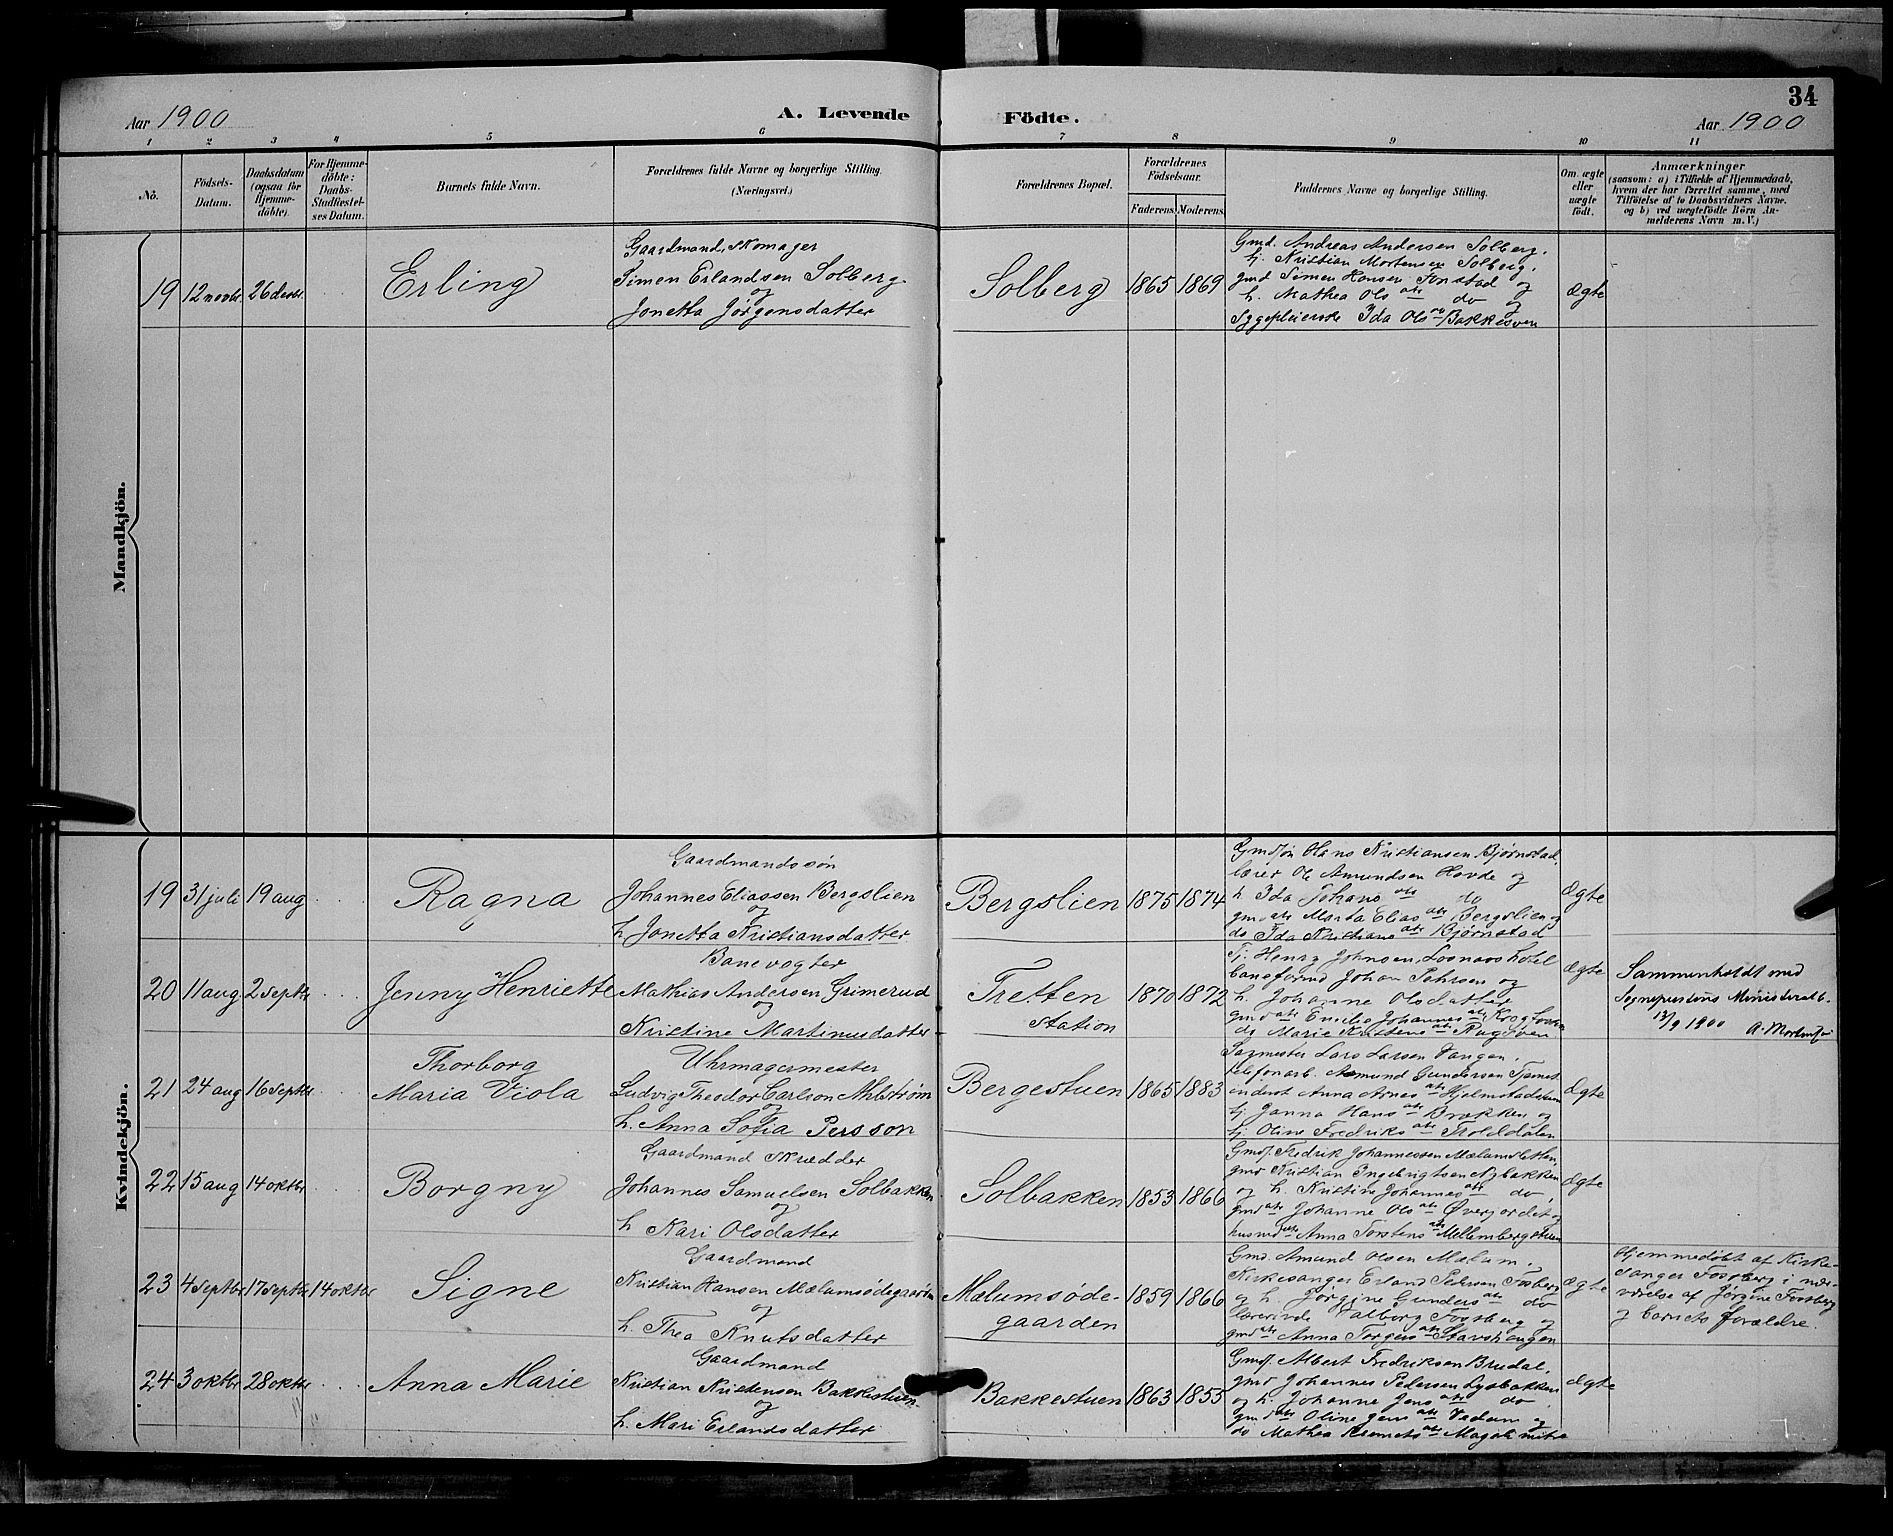 34
Aar 1900
A. Levende
Födte.
Aar 1900
1 2 3 4 5 6 7 8 9 10 11
No.
Födsels-
Datum.
Daabsdatum
(ogsaa for
Hjemme-
döbte).
For Hjemme-
döbte:
Daabs-
Stadfæstel-
ses Datum.
Barnets fulde Navn.
Forældrenes fulde Navne og borgerlige Stilling.
(Næringsvei.)
Forældrenes Bopæl.
Forældrenes
Födselsaar.
Faderens. Moderens.
Faddernes Navne og borgerlige Stilling.
Om ægte
eller
uægte
födt.
Anmærkninger
(saasom: a) i Tilfælde af Hjemmedaab,
hvem der har forrettet samme, med
Tilföielse af to Daabsvidners Navne.
og b) ved uægtefödte Börn An-
melderens Navn m. V.)
Mandkjön.
19 12 novbr. 26 desbr.
Erling
Gaardmand, Skomager
Simen Erlandsen Solberg
og
Jonetta Jørgensdatter
Solberg
1865 1869
Gmd. Andreas Andersen Solberg,
Kristian Mortensen Solberg,
gmd Simen Hansen og
h. Mathea Ols dtr do og
Sygepleierske Ida Ols Bakkesven
Ægte
Kvindekjön.
19 31 juli 19 aug
Ragna
Gaardmandssøn
Johannes Eliassen Bergslien
og
h. Jonetta Kristiansdatter
Bergslien
1875 1874
Gmdsøn Olaus Kristiansen Bjørnstad,
lærer Ole Amundsen Hovde og
h. Ida Johans dtr do
gmd dtr Marta Elias dtr Bergslien og
do Ida Kristians dtr Bjørnstad
Ægte
20 11 aug. 2 septbr
Jenny Henriette
Banevogter
Mathias Andersen Grimerud
og
Kristine Martinusdatter
Tretten
station
1870 1872
Tj. Henry Johnsen, Losnaos hotel
baneformd Johan Pehrsen og
h. Johanne Olsdatter
gmd dtr Emilie Johannes dtr
do Marie Kristens dtr Rugsveen
Ægte
Sammenholdt med
Sogneprestens Ministerialb.
13/9 1900
21 24 aug 16 septbr
Thorborg
Maria Viola
Uhrmagermester
Ludvig Theodor Carlson Ahlstrøm
og
h. Anna Sofia Persson
Bergestuen
1865 1883
Sagmester Lars Larsen Vangen,
telefonarb. Asmund Gundersen
inderst Anna Arnes dtr Hjelmstadstuen
tj. Janna Hans dtr Brække og
tj. Oline Fredriks dtr Trolddalen
Ægte
22 15 aug 14 oktbr
Borgny
Gaardmand Skrædder
Johannes Samuelsen Solbakken
og
h. Kari Olsdatter
Solbakken
1853 1866
Gmdsf. Fredrik Johannessen Mælumsletten,
gmd Kristian Ingebrigtsen Nybakken
og h. Kristine Johannes dtr do,
gmd dtr Johanne Ols dtr Øverjordet og
husmd dtr Anna Torstens dtr Mellembergstuen
Ægte
23 4 septbr 17 septbr 14 oktbr
Signe
Gaardmand
Kristian Hansen Mælumsødegaarden
og
h. Thea Knutsdatter
Mælumsøde-
gaarden
1859 1866
Gmd. Amund Olsen Mælum,
Kirkesanger Erland Pedersen Fossberg
og h. Jørgine Gunders dtr do
lærerinde Valborg Fossberg og
gmd dtr Anna Torgers dtr Stavshaugen
Ægte
Hjemmedøbt af Kirke-
sanger Fossberg i nær-
værelse af Jørgine Fossberg
og barnets forældre.
24 3 oktbr 28 oktbr
Anna Marie
Gaardmand
Kristian Kristensen Bakkestuen
og
h. Mari Erlandsdatter
Bakkestuen
1863 1855
Gmdsf. Albert Fredriksen Brudal,
gmd Johannes Pedersen Lysbakken
og h. Johanne Jens dtr do
gmd dtr Oline Jens dtr Vedum og
do Mathea dtr
Ægte